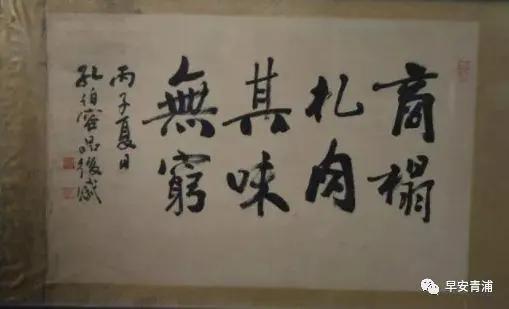 商榻
札肉
其味
無窮
丙子夏日
孔伯容品後感
早安青浦